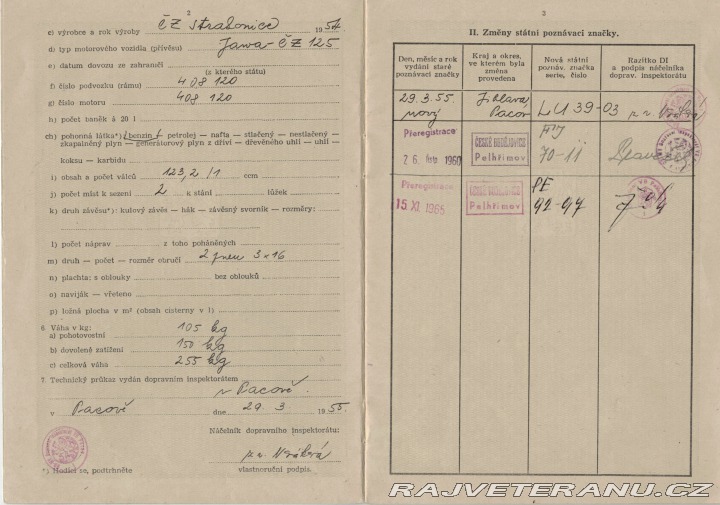 2
c) výrobce a rok výroby ČZ Strakonice 1954
d) typ motorového vozidla (přívěsu) Jawa-ČZ 125
e) datum dovozu ze zahraničí
(z kterého státu)
f) číslo podvozku (rámu) 408 120
g) číslo motoru 408 120
h) počet taněk à 20 l
ch) pohonná látka*) benzin — petrolej — nafta — stlačený — nestlačený —
zkapalněný plyn — generátorový plyn z dříví — dřevěného uhlí — uhlí —
koksu — karbidu
i) obsah a počet válců 123,2/1 ccm
j) počet míst k sezení 2 k stání lůžek
k) druh závěsu*): kulový závěs — hák — závěsný svorník — rozměry:
l) počet náprav z toho poháněných
m) druh — počet — rozměr obručí 2 pneu 3x16
n) plachta: s oblouky bez oblouků
o) naviják — vřeteno
p) ložná plocha v m² (obsah cisterny v l)
6. Váha v kg:
a) pohotovostní 105 kg
b) dovolené zatížení 150 kg
c) celková váha 255 kg
7. Technický průkaz vydán dopravním inspektorátem
v Pacově
v Pacově dne 29. 3. 1955.
Náčelník dopravního inspektorátu:
vlastnoruční podpis.
*) Hodící se, podtrhněte
3
II. Změny státní poznávací značky.
Den, měsíc a rok vydání staré poznávací značky
Kraj a okres, ve kterém byla změna provedena
Nová státní poznáv. značka serie, číslo
Razítko DI a podpis náčelníka doprav. inspektorátu
29.3.55. nový Jihlava Pacov LU 39-03
Přeregistrace 26. listo 1960 ČESKÉ BUDĚJOVICE Pelhřimov 70-11
Přeregistrace 15. XI. 1965 ČESKÉ BUDĚJOVICE Pelhřimov PE 92-97
RAJVETERANU.CZ